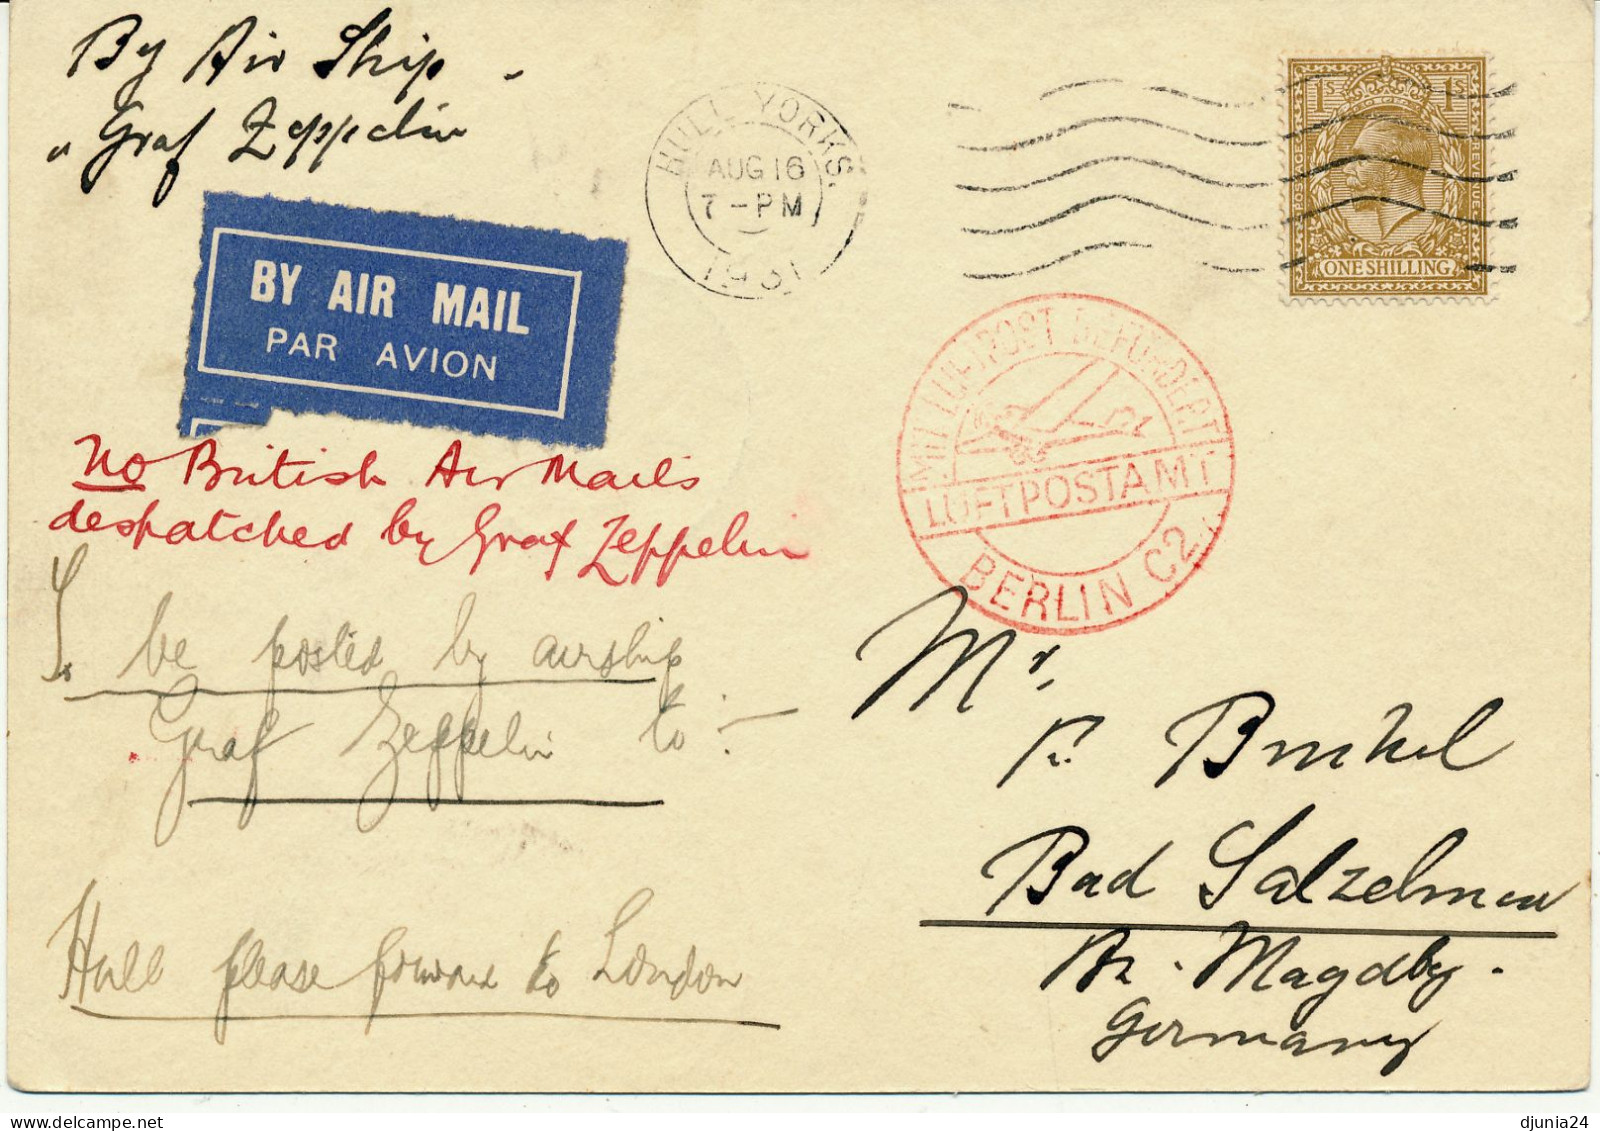 By Air Ship -
" Graf Zeppelin
HULL YORKS.
AUG 16
7 - PM
1931
1S 1S
POSTAGE REVENUE
ONE SHILLING
BY AIR MAIL
PAR AVION
MIT LUFTPOST BEFÖRDERT
LUFTPOSTAMT
BERLIN C2
No British Air Mails
despatched by Graf Zeppelin
To be posted by airship
Graf Zeppelin to :-
Hull please forward to London
Mr.
Bad Salzelmen
Bz. Magdbg.
Germany
delcampe.net
djunia24